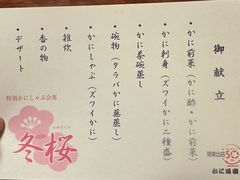 御献立
・かに前菜(かに酢・かに前菜)
・かに刺身(ズワイかに二種盛)
・かに茶碗蒸し
・椀物(タラバかに薯蒸し)
・かにしゃぶ(ズワイかに)
・雑炊
・香の物
・デザート
特別かにしゃぶ会席
冬桜
かに道楽